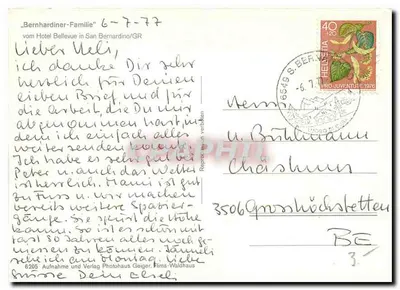 "Bernhardiner-Familie" 6-7-77
vom Hotel Bellevue in San Bernardino/GR
Lieber Ueli,
ich danke Dir sehr
herzlich für Deinen
lieben Brief und für
die Arbeit, die Du mir
abgenommen hast, in
dem ich einfach alles
weitersenden konnte.
Ich habe es sehr gut bei
Peter u. auch das Wetter
ist herrlich. Mami ist gut
zu Fuss u. wir machen
bereits weitere Spazier-
gänge. Sie spürt die Höhe
kaum. So ist es schön mit
fast 80 Jahren alles noch ge-
niessen zu können.
seh ich am Montag. Liebe
Grüsse Dein
6295 Aufnahme und Verlag Photohaus Geiger, Flims-Waldhaus
HELVETIA
40
PRO JUVENTUTE 1976
6549 S. BERNARDINO
Herrn
U. Bühlmann
3506 Grosshöchstetten
BE
3.-